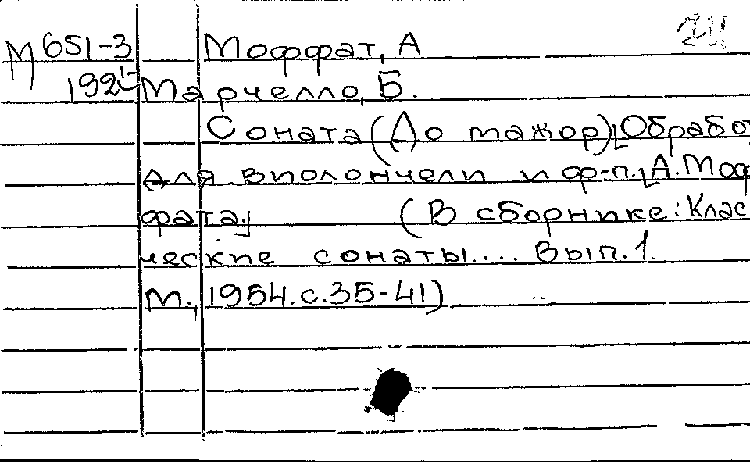 М 651-3 Моффат, А
Марчелло, Б.
Соната (До мажор) [Обрабо
для виолончели и ф-п. [А. Моф
фата.] (В сборнике: Клас
ческие сонаты.... Вып. 1.
М., 1954. с. 35-41)